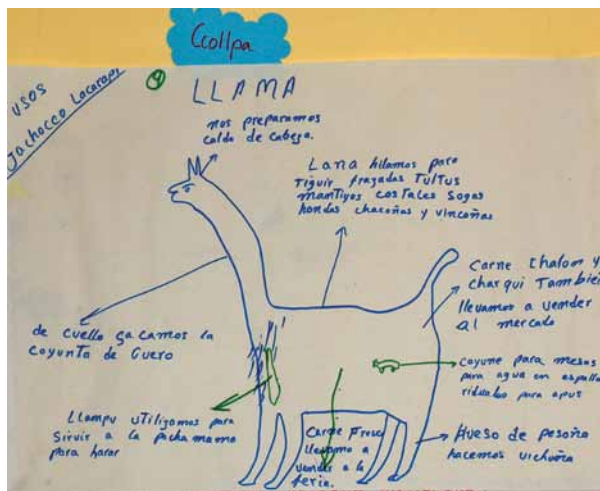 Ccollpa
USOS
Jachocco Lacarapi
④
LLAMA
nos preparamos
caldo de cabeza.
Lana hilamos para
Tiguir fragadas Tultus
mantiyos costales sogas
hondas chacoñas y vincoñas
Carne Chalon y
charqui Tambien
llevamos a vender
al mercado
de cuello sacamos la
coyunta de Cuero
coyune para mesas
para agua en espalla
ridualos para apus
Llampu utiligamos para
Sirvir a la pachamama
para harar
Carne Fresc
llevamo a
vender a la
feria.
Hueso de pesoña
hacemos vichuña